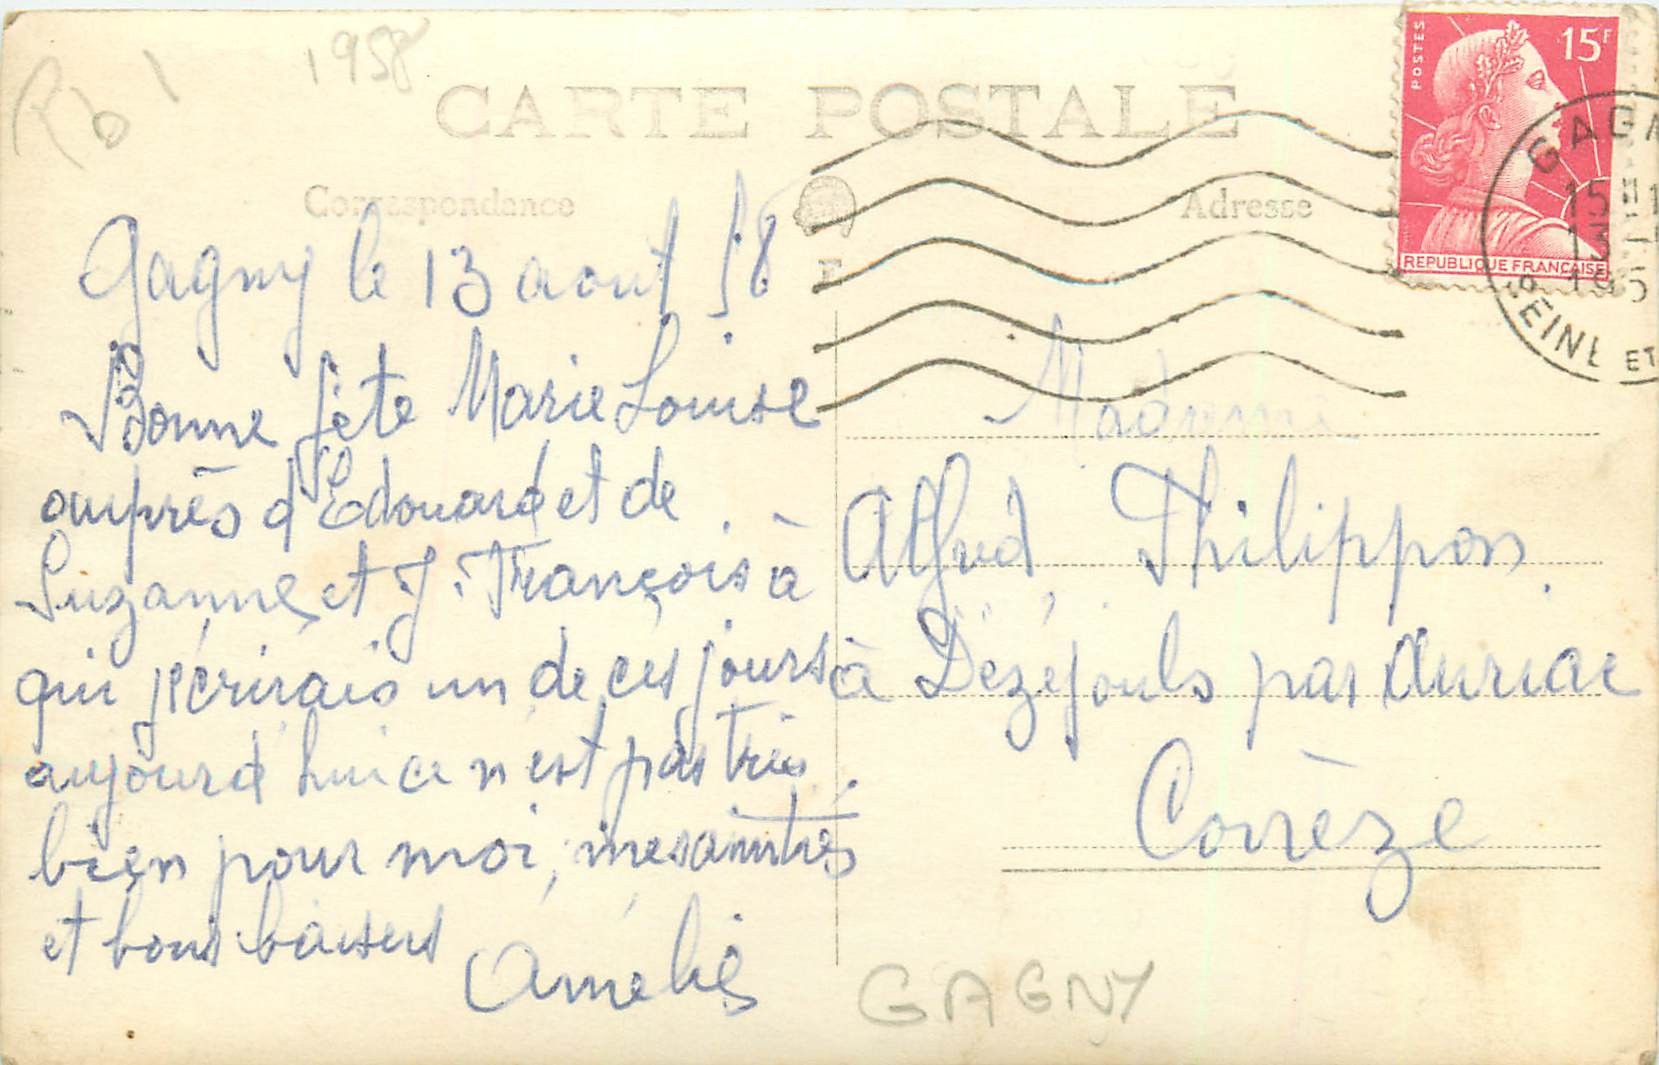 1958
CARTE POSTALE
Correspondance
Adresse
POSTES
15F
REPUBLIQUE FRANÇAISE
GAGN
15 H
13
195
SEINE ET
Gagny le 13 aout 58
Bonne fête Marie Louise
auprès d'Edouard et de
Suzanne et J. François à
qui j'écrirais un de ces jours
aujourd'hui ce n'est pas très
bien pour moi, mes amitiés
et bons baisers
Amélie
Madame
Alfred Philippon
à Dézéjouls par Auriac
Corrèze
GAGNY